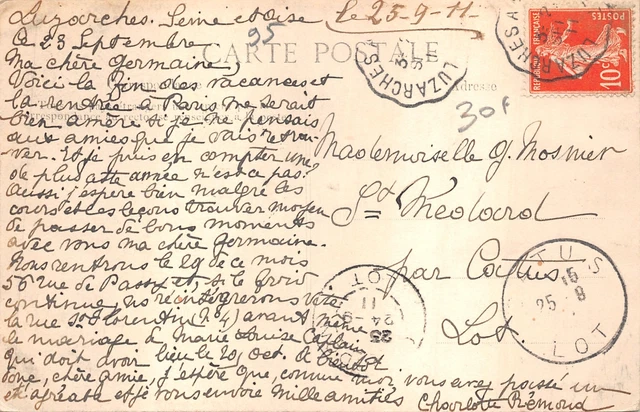 Luzarches. Seine et Oise
le 23-9-11
95
ce 23 Septembre
CARTE POSTALE
Ma chère Germaine,
Voici la fin des vacances et
la rentrée à Paris me serait
bien amère si je ne pensais
aux amies que je vais retrou-
ver. Et je puis en compter une
de plus cette année n'est-ce pas?
Aussi j'espère bien malgré les
cours et les leçons trouver moyen
de passer de bons moments
avec vous ma chère Germaine.
Nous rentrons le 29 de ce mois
56 rue de Passy et, si le froid
continue, ns réintégrerons vite
la rue St Florentin (No 4) avant même
le mariage de Marie Louise Caplain
qui doit avoir lieu le 20, Oct. A bientôt
donc, chère amie, j'espère que, comme moi, vous avez passé un
été agréable et je vous envoie mille amitiés
Charlotte Rémond
Adresse
30f
Mademoiselle G. Mosnier
St Médard
par Catus
Lot.
LUZARCHES
LUZARCHES
REPUBLIQUE FRANÇAISE
POSTES
10c
LOT
11
24-9
TUS
15
25 9
LOT